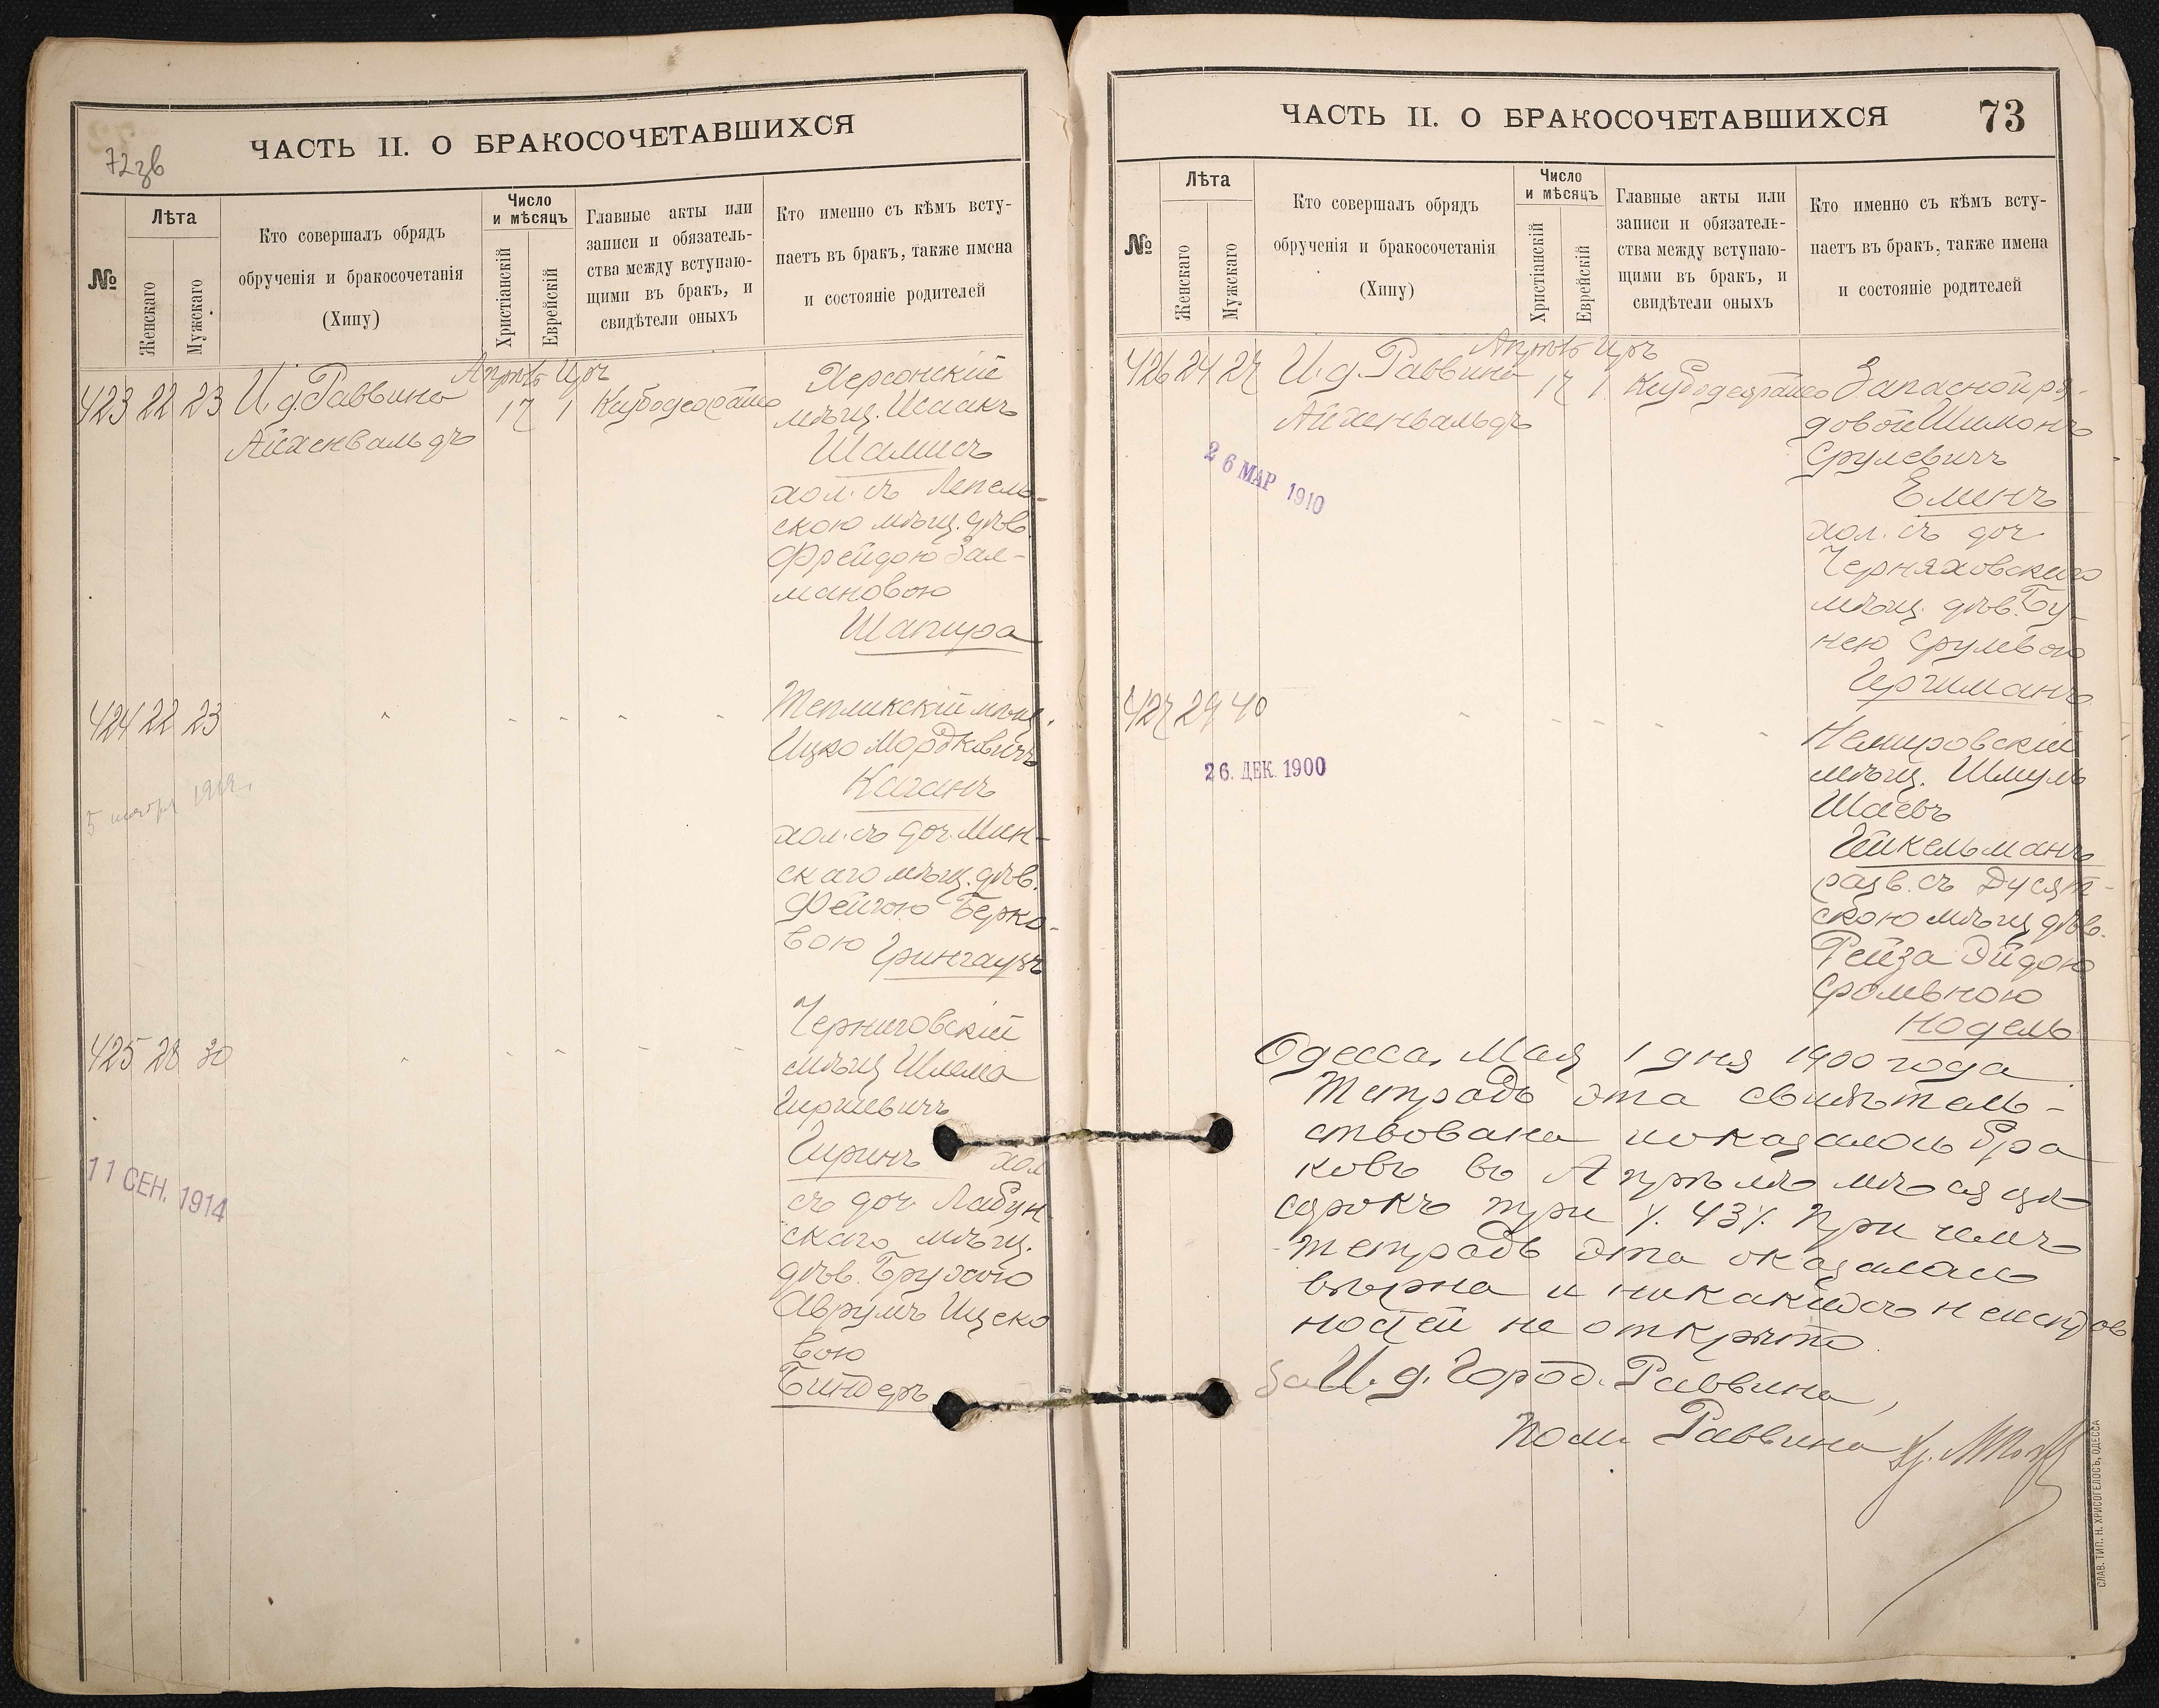 ЧАСТЬ II. О БРАКОСОЧЕТАВШИХСЯ
72 зв
№
Лѣта
Женскаго
Мужскаго
Кто совершалъ обрядъ
обрученія и бракосочетанія
(Хипу)
Число
и мѣсяцъ
Христіанскій
Еврейскій
Главные акты или
записи и обязатель-
ства между вступаю-
щими въ бракъ, и
свидѣтели оныхъ
Кто именно съ кѣмъ всту-
паетъ въ бракъ, также имена
и состояніе родителей
423 22 23 И. д. Раввина
Айхенвальдъ
Апрѣль Іиръ
17 1
Херсонскій
мѣщ. Исаакъ
Шамисъ
хол. съ Лепель-
скою мѣщ. дѣв.
Фрейдою Зал-
мановою
Шапира
424 22 23
Тепликскій мѣщ.
Ицко Мордковичъ
Каганъ
хол. съ доч. Мин-
скаго мѣщ. дѣв.
Фейгою Берко-
вою Грингаузъ
425 28 30
Черниговскій
мѣщ Шлема
Гиршевичъ
Гиринъ хол
съ доч. Лабун
скаго мѣщ.
дѣв. Брухою
Аврумъ Ицко
вою
Биндеръ
11 СЕН. 1914
ЧАСТЬ II. О БРАКОСОЧЕТАВШИХСЯ
73
№
Лѣта
Женскаго
Мужскаго
Кто совершалъ обрядъ
обрученія и бракосочетанія
(Хипу)
Число
и мѣсяцъ
Христіанскій
Еврейскій
Главные акты или
записи и обязатель-
ства между вступаю-
щими въ бракъ, и
свидѣтели оныхъ
Кто именно съ кѣмъ всту-
паетъ въ бракъ, также имена
и состояніе родителей
426 24 27 И. д. Раввина
Айхенвальдъ
Апрѣль Іиръ
17 1
26 МАР 1910
Запасной ря-
довой Шимонъ
Срулевичъ
Еминъ
хол. съ доч
Черняховскаго
мѣщ. дѣв. Бу-
нею Срулевою
427 29 40
26. ДЕК. 1900
Немировскій
мѣщ. Шмуль
Шаевъ
разв. съ Дусят-
скою мѣщ дѣв.
Рейза Эйдою
Сролевною
Нодель
Одесса, Мая 1 дня 1900 года
Тетрадь эта свидѣтель-
ствована и оказалось бра
ковъ въ Апрѣлѣ мѣсяцѣ
сорокъ три /. 43/. При чемъ
тетрадь эта оказалась
вѣрна и никакихъ неисправ
ностей не открыто
За И. д. Город. Раввина,
Пом. Раввина
СЛАВ. ТИП. Н. ХРИСОГЕЛОСЪ, ОДЕССА